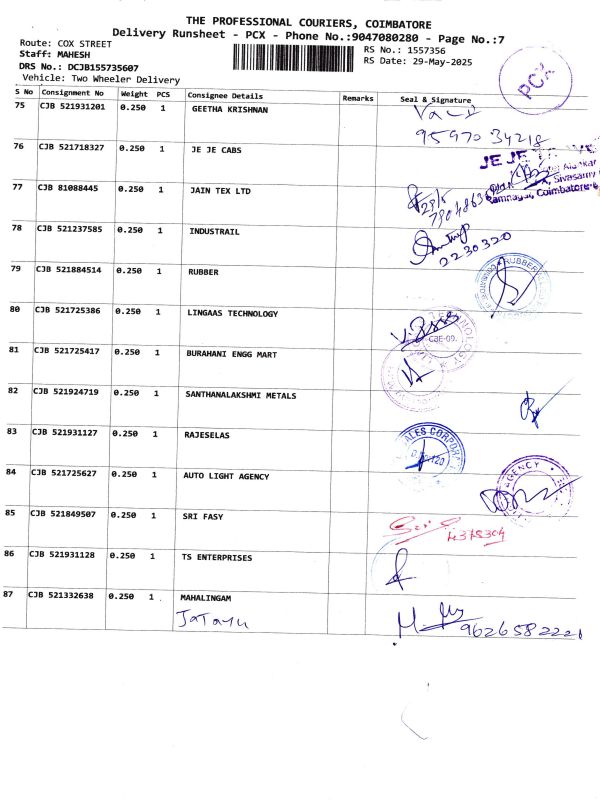 THE PROFESSIONAL COURIERS, COIMBATORE
Delivery Runsheet - PCX - Phone No.:9047080280 - Page No.:7
Route: COX STREET
Staff: MAHESH
DRS No.: DCJB155735607
Vehicle: Two Wheeler Delivery
RS No.: 1557356
RS Date: 29-May-2025
PCX
S No Consignment No Weight PCS Consignee Details Remarks Seal & Signature
75 CJB 521931201 0.250 1 GEETHA KRISHNAN
95970 34218
76 CJB 521718327 0.250 1 JE JE CABS
JE JE
77 CJB 81088445 0.250 1 JAIN TEX LTD
Ramnagar, Coimbatore
78 CJB 521237585 0.250 1 INDUSTRAIL
2230320
79 CJB 521884514 0.250 1 RUBBER
RUBBER
80 CJB 521725386 0.250 1 LINGAAS TECHNOLOGY
CBE-09.
81 CJB 521725417 0.250 1 BURAHANI ENGG MART
82 CJB 521924719 0.250 1 SANTHANALAKSHMI METALS
83 CJB 521931127 0.250 1 RAJESELAS
SALES CORPORA
84 CJB 521725627 0.250 1 AUTO LIGHT AGENCY
AGENCY
85 CJB 521849507 0.250 1 SRI FASY
4378304
86 CJB 521931128 0.250 1 TS ENTERPRISES
87 CJB 521332638 0.250 1 MAHALINGAM
Jatayu
9626582221